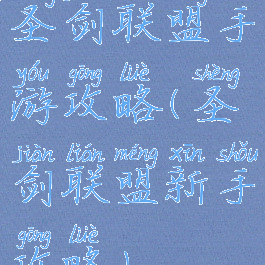 圣剑联盟手
yóu gōng lüè shèng
游攻略(圣
jiàn lián méng xīn shǒu
剑联盟新手
gōng lüè
攻略)